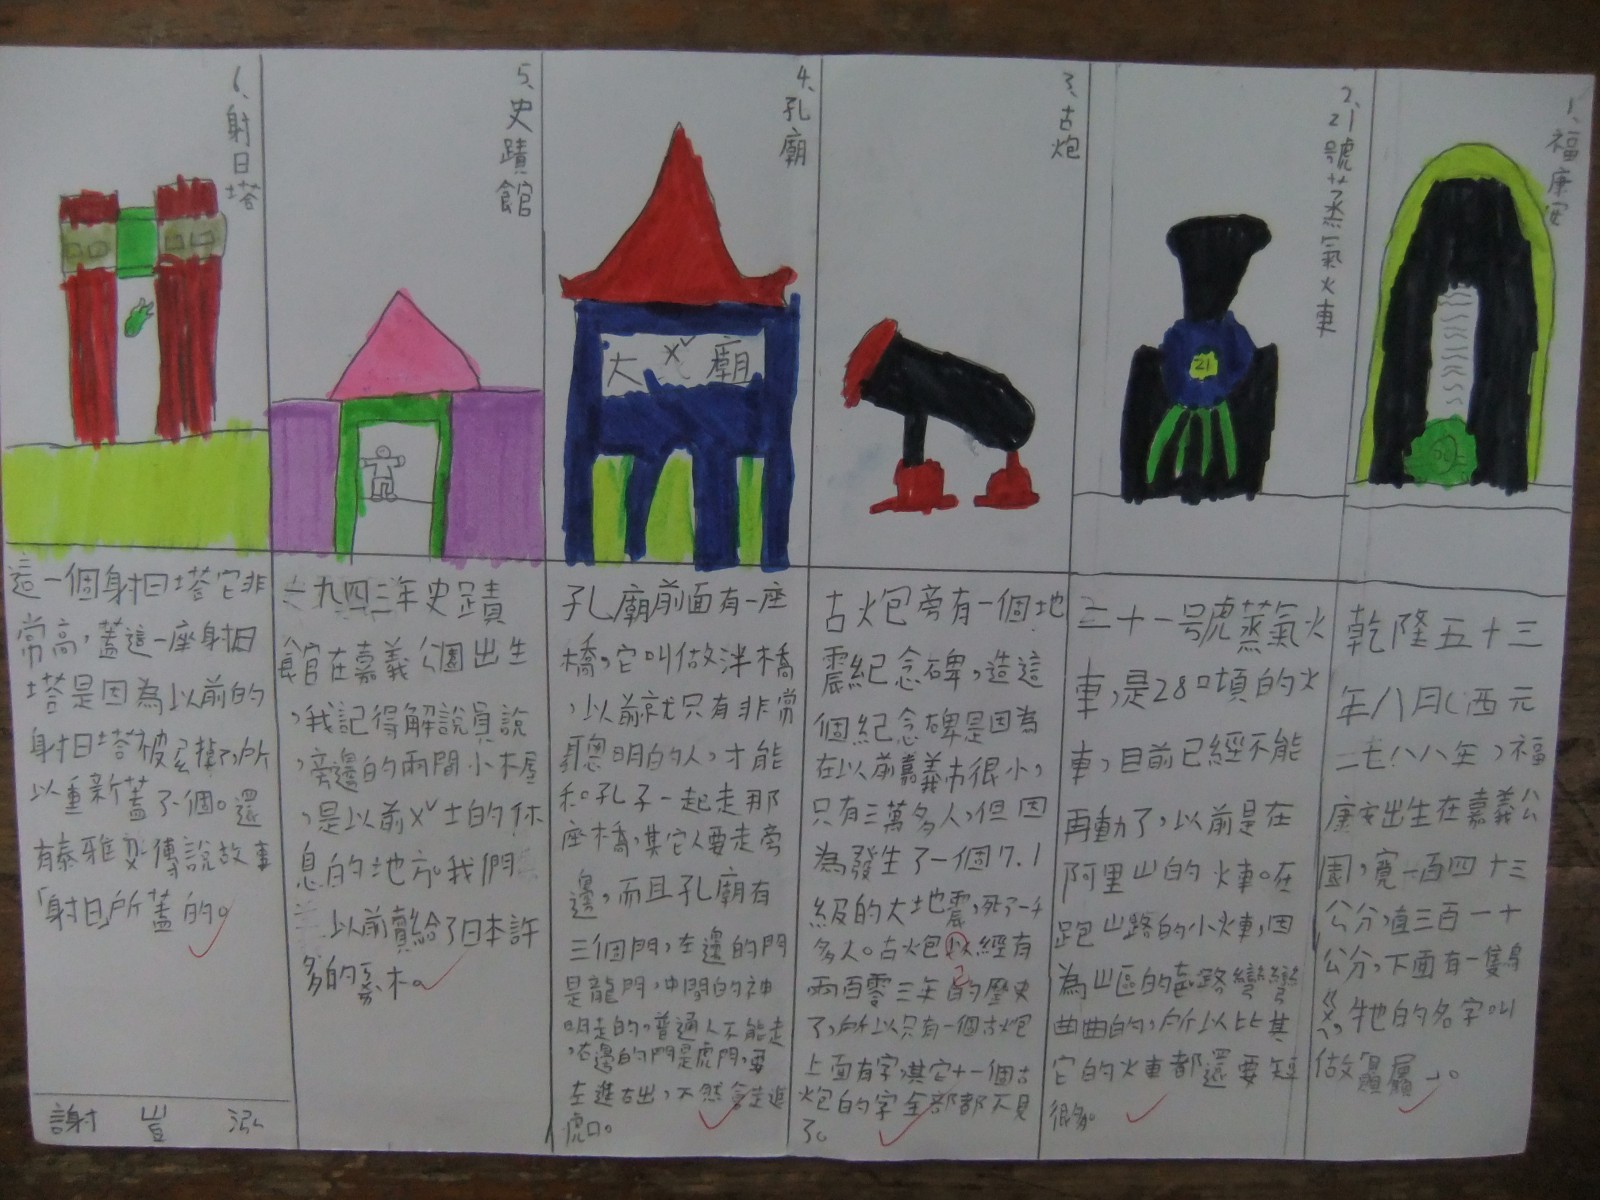 1、福康安
乾隆五十三
年八月(西元
一七八八年),福
康安出生在嘉義公
園,寬一百四十三
公分,直三百一十
公分,下面有一隻烏
牠的名字叫
做贔屭。
2、21號蒸氣火車
21
二十一號蒸氣火
車,是28噸的火
車,目前已經不能
再動了,以前是在
阿里山的火車。在
跑山路的小火車,因
為山區的路彎彎
曲曲的,所以比其
它的火車都還要短
很多。
3、古炮
古炮旁有一個地
震紀念碑,造這
個紀念碑是因為
在以前嘉義市很小,
只有三萬多人,但因
為發生了一個7.1
級的大地震,死了一千
多人。古炮以經有
已
兩百零三年的歷史
了,所以只有一個古炮
上面有字,其它十一個古
炮的字全部都不見
了。
4、孔廟
大ㄨˇ廟
孔廟前面有一座
橋,它叫做泮橋
,以前就只有非常
聰明的人,才能
和孔子一起走那
座橋,其它人要走旁
邊,而且孔廟有
三個門,左邊的門
是龍門,中間的神
明走的,普通人不能走
,右邊的門是虎門,要
左進右出,不然會走進
虎口。
5、史蹟館
一九四三年史蹟
館在嘉義公園出生
,我記得解說員說
,旁邊的兩間小木屋
,是以前ㄨˇ士的休
息的地方。我們
以前賣給了日本許
多的木。
6、射日塔
這一個射日塔它非
常高,蓋這一座射日
塔是因為以前的
射日塔被掉了,所
以重新蓋了個。還
有泰雅傳說故事
「射日」所蓋的。
謝 豈 泓